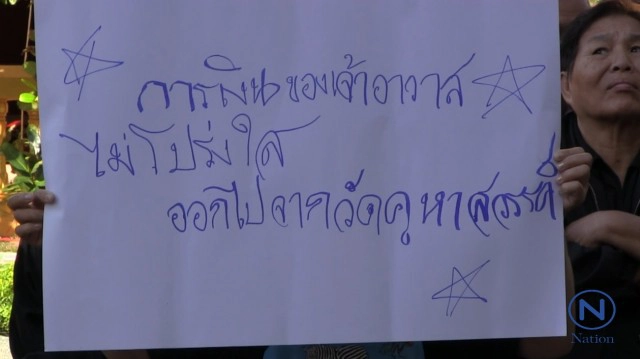 การเงินของเจ้าอาวาส
ไม่โปร่งใส
ออกไปจากวัดคูหาสวรรค์
N
Nation